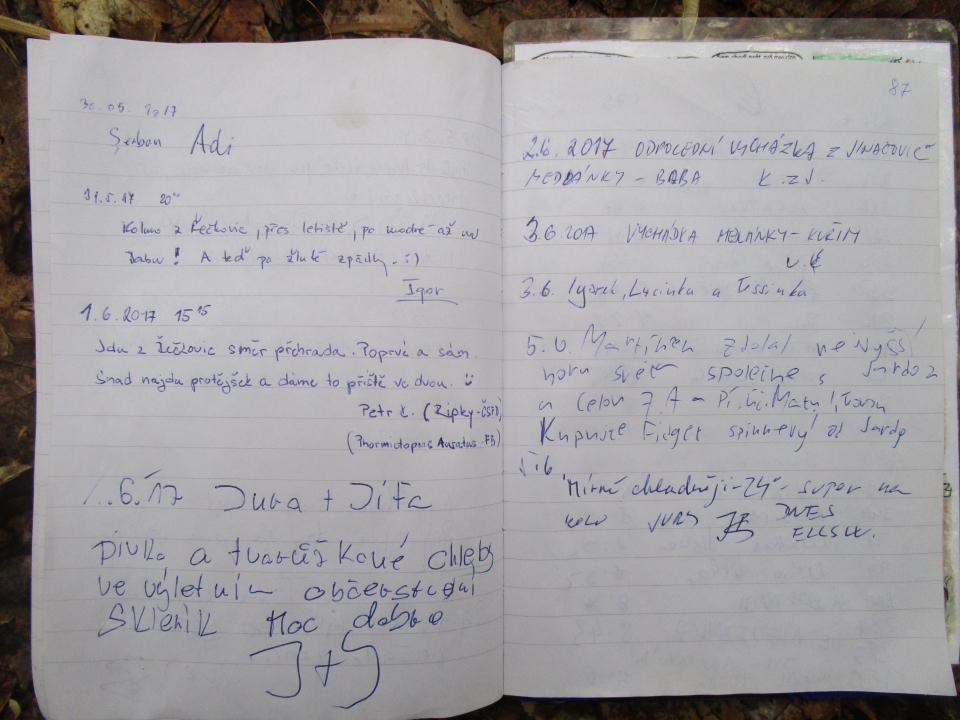 30.05. 2017
Şerban Adi
31.5.17 20⁰⁰
Kolmo z Řečkovic, přes letiště, po modré až na
Babu! A teď po žluté zpátky. :)
Igor
1.6.2017 15¹⁵
Jdu z Řečkovic směr přehrada. Poprvé a sám.
Snad najdu protějšek a dáme to příště ve dvou.
Petr L. (Zipky-ČSFD)
(Thormidopnis Auratus-FB)
1..6.17 Jura + Jíťa
pivko a tvarůžkové chleby
ve výletním občerstvení
Skleník Moc dobré
J+J
87
2.6. 2017 ODPOLEDNÍ VYCHÁZKA Z JINAČOVIC
MEDLÁNKY - BABA K.ZJ.
3.6.2017 VYCHÁZKA MEDLÁNKY - KUŘIM
3.6. Igorek, Lucinka a Tessinka
5.6. Martínek zdolal nejvyšší
horu světa společně s
a celou 7.A - Pí.Uč.
Kupujte Fidget spinnery! od
5.6
Mírně chladněji - 24° - super na
kolo JURA DNES